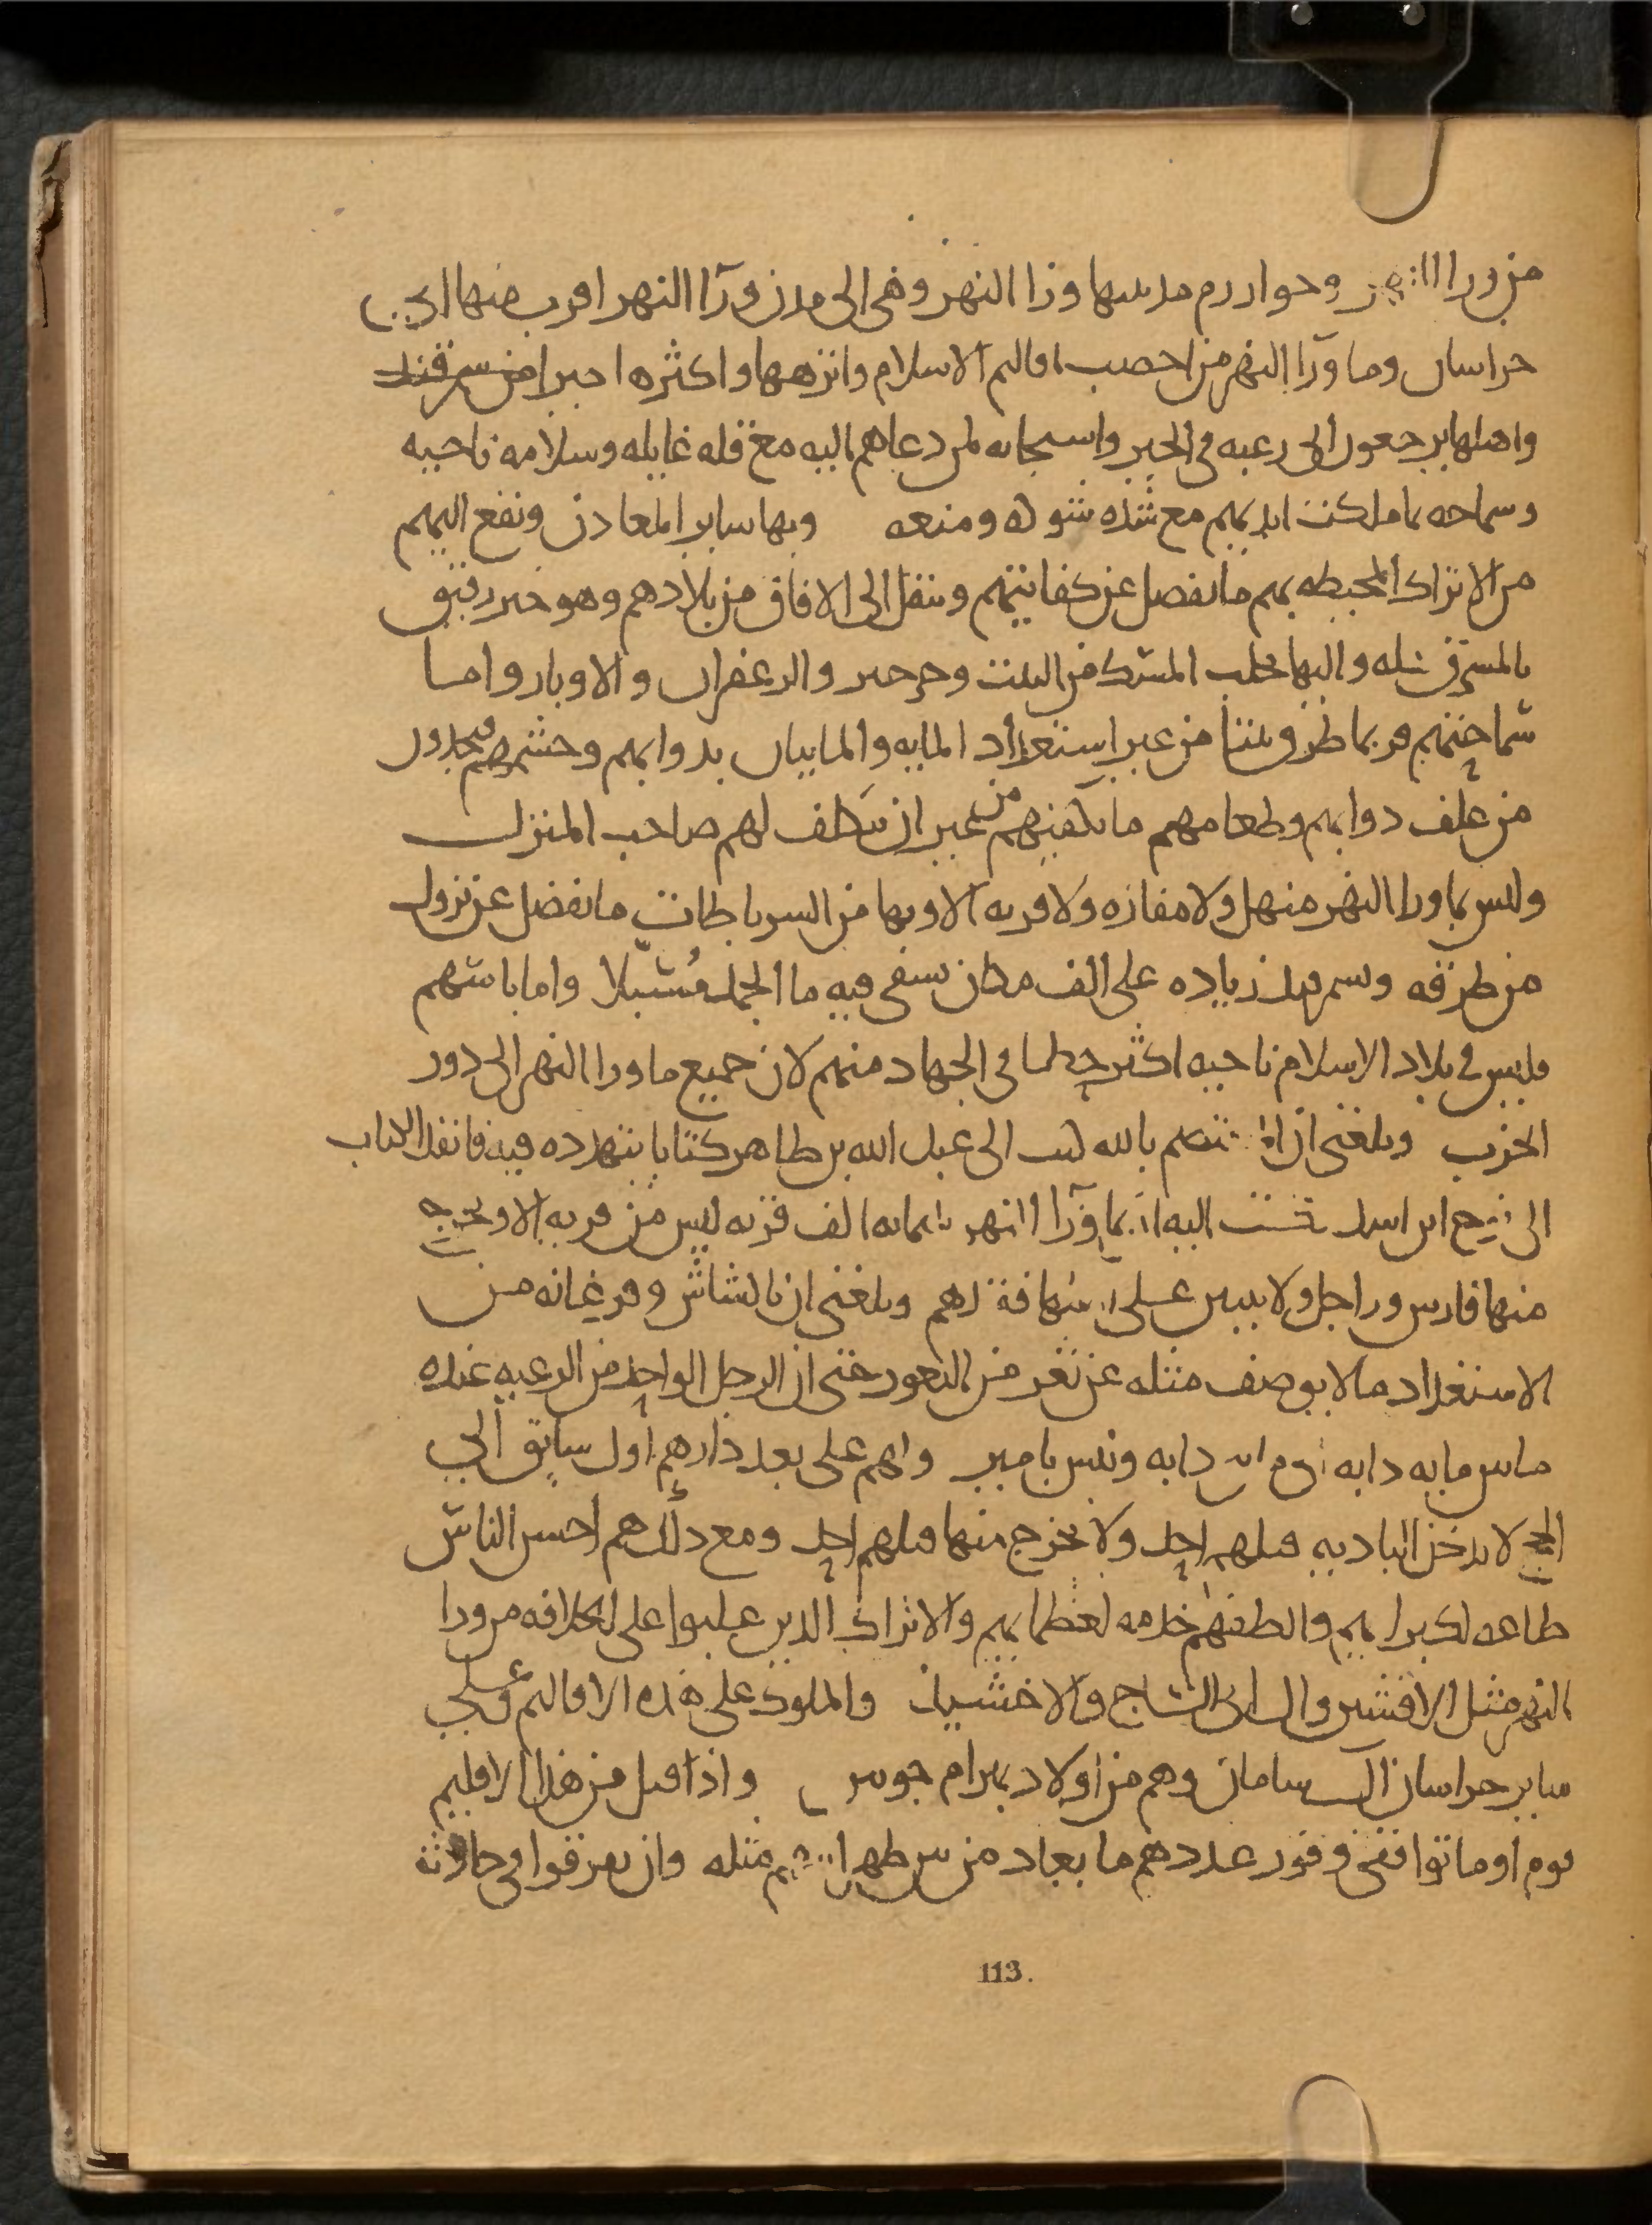 من ورا النهر وخوارزم مدينتها ورا النهر وهي الى مدن ورآ النهر اقرب منها الى
خراسان وما ورآ النهر من اخصب اقاليم الاسلام وانزهها واكثره خيرا من سمرقند
واهلها يرجعون الى رغبه في الخير واستجابه لمن دعاهم اليه مع قله غايله وسلامه ناحيه
وسماحه بما ملكت ايديهم مع شده شوكه ومنعه وبها ساير المعادن ونفع اليهم
من الاتراك المحيطه بهم ما يفضل عن كفايتهم وينقل الى الافاق من بلادهم وهو خير رقيق
بالمشرق كله واليها يجلب المسك من التبت وخرخير والزعفران والاوبار واما
سماحتهم فربما طرق بيتنا من غير استعداد المايه والمايتان بدوابهم وحشمهم فيجدون
من علف دوابهم وطعامهم ما يكفيهم من غير ان يتكلف لهم صاحب المنزل
وليس بما ورا النهر منهل ولا مفازه ولا قريه الا وبها من الرباطات ما يفضل عن نزول
من طرقه وبسمرقند زياده على الف مكان يسقى فيه ما الجمد مُسَبّلا واما باسهم
فليس في بلاد الاسلام ناحيه اكثر حظا في الجهاد منهم لان جميع ما ورا النهر الى دور
الحرب وبلغني ان المعتصم بالله كتب الى عبد الله بن طاهر كتابا يتهدده فيه فانفذ الكتاب
الى نوح ابن اسد فكتب اليه ان بما ورآ النهر ثلثمايه الف قريه ليس من قريه الا ويخرج
منها فارس وراجل ولا يتبين على اهلها فقدهم وبلغني ان بالشاش وفرغانه من
الاستعداد ما لا يوصف مثله عن ثغر من الثغور حتى ان الرجل الواحد من الرعيه عنده
ما بين مايه دابه الى خمس مايه دابه وليس بامير وهم على بعد دارهم اول سابق الى
الحج لا يدخل الباديه قبلهم احد ولا يخرج منها قبلهم احد ومع ذلك هم احسن الناس
طاعه لكبرايهم والطفهم خدمه لعظمايهم والاتراك الذين غلبوا على الخلافه من ورا
النهر مثل الافشين وال ابي الساج والاخشيد والملوك على هذه الاقاليم وعلى
ساير خراسان آل سامان وهم من اولاد بهرام جوبين واذا قتل من هذا الاقليم
قوم او ماتوا ففي وفور عددهم ما يعاد من بين ظهرانيهم مثله وان تفرقوا في حادثة
113.